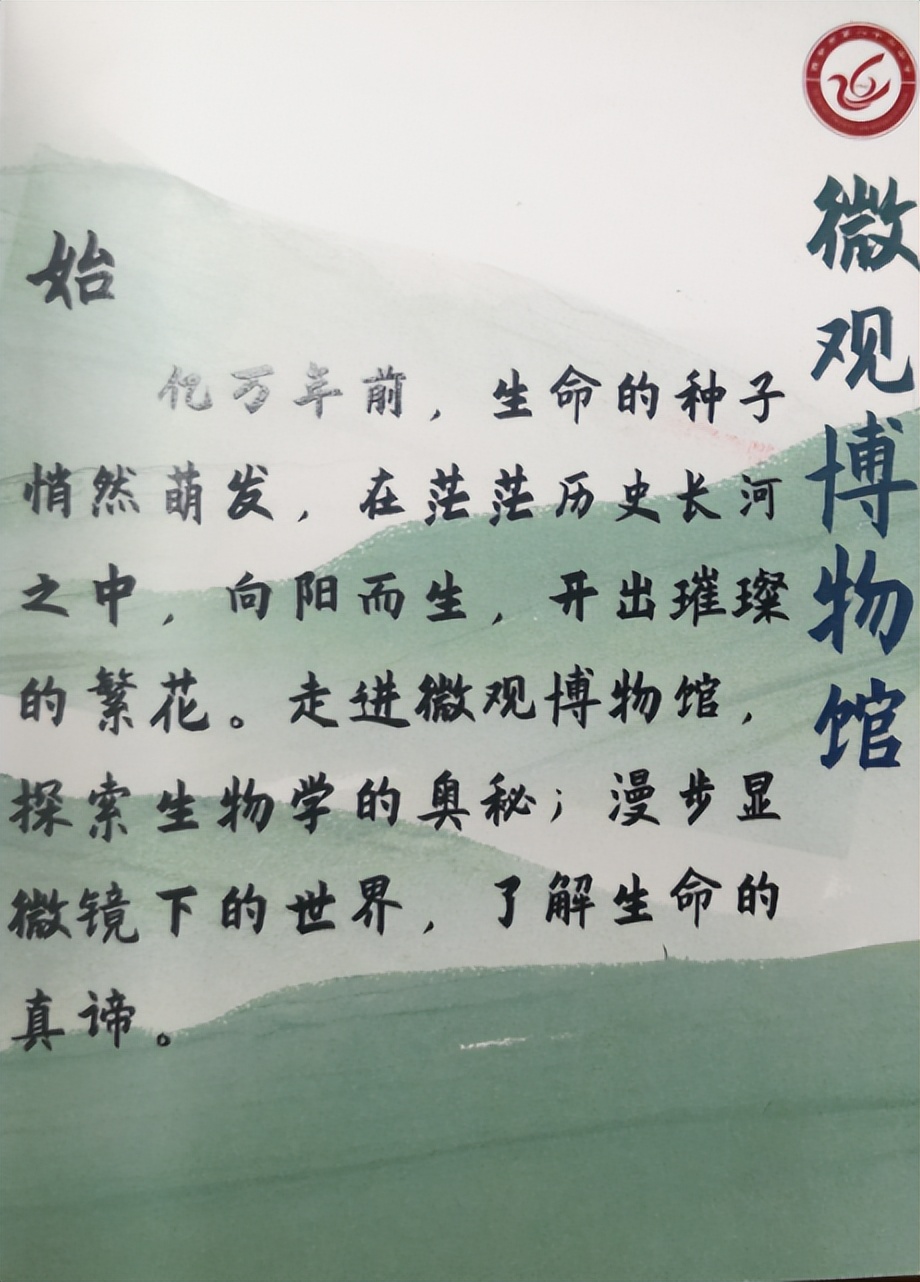 微观博物馆
始
亿万年前，生命的种子
悄然萌发，在茫茫历史长河
之中，向阳而生，开出璀璨
的繁花。走进微观博物馆，
探索生物学的奥秘；漫步显
微镜下的世界，了解生命的
真谛。